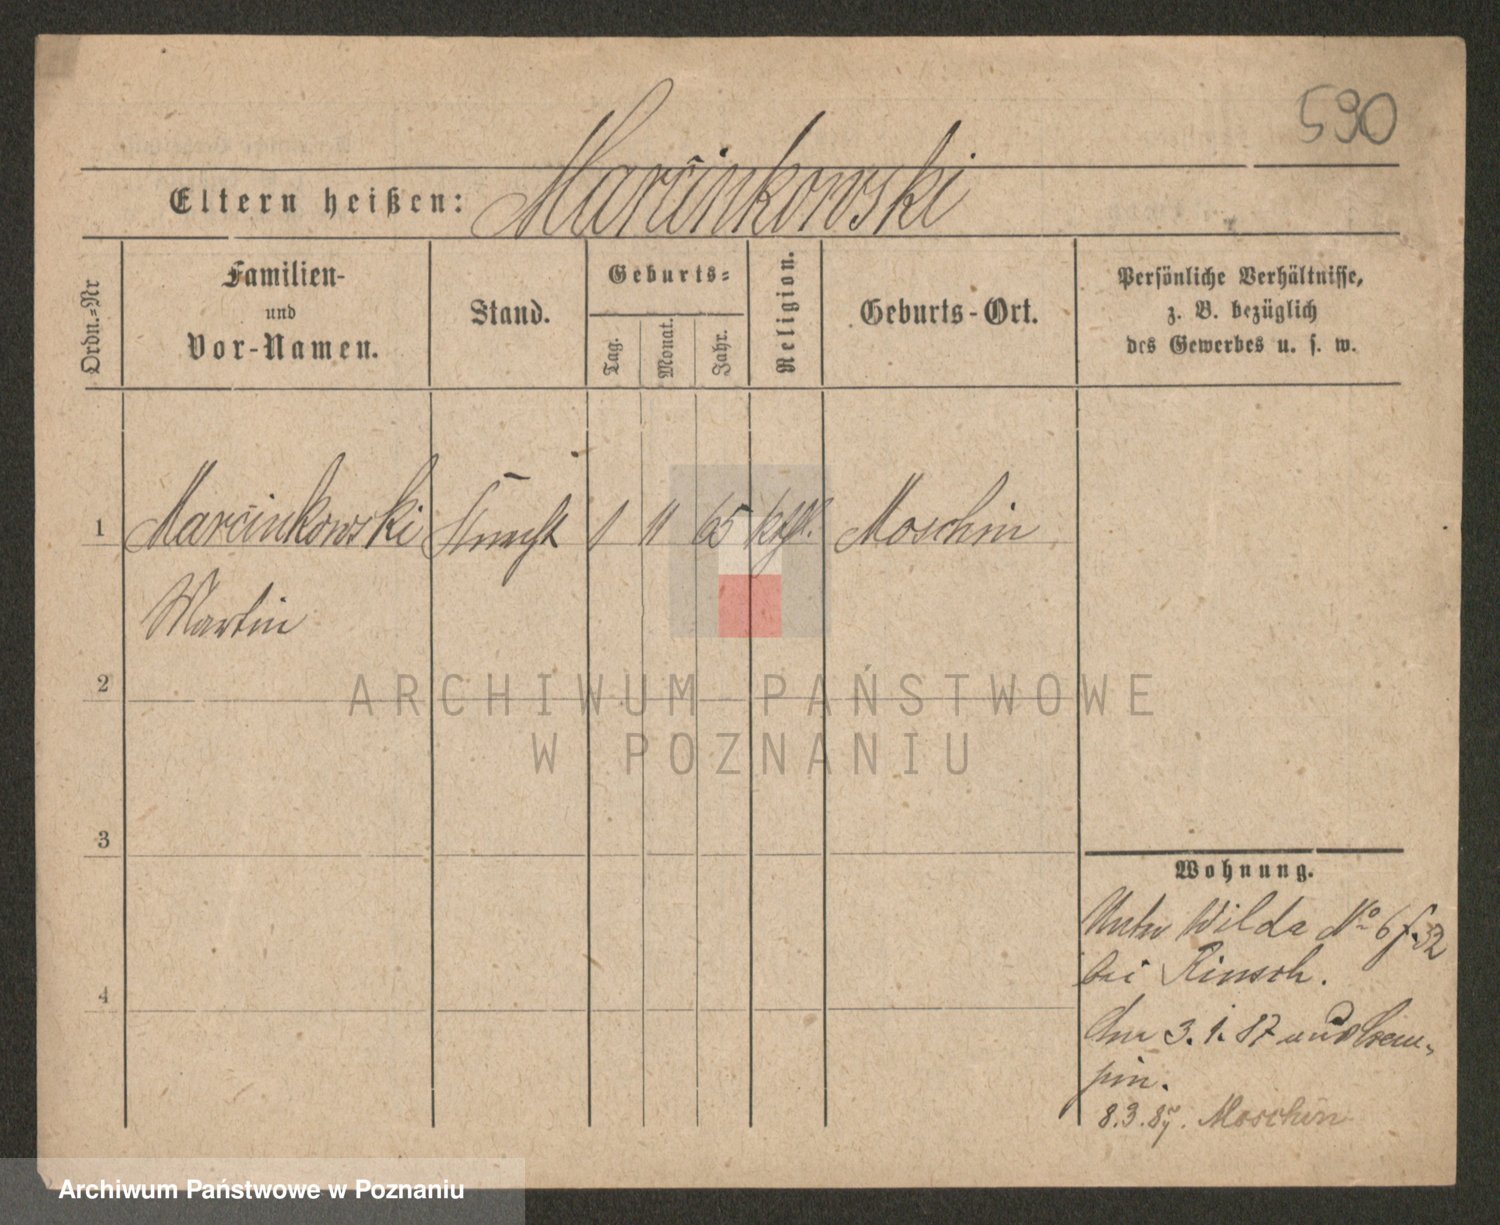 590
Eltern heißen: Marcinkowski
Ordn.=Nr
Familien-
und
Vor-Namen.
Stand.
Geburts=
Tag.
Monat.
Jahr.
Religion.
Geburts-Ort.
Persönliche Verhältnisse,
z. B. bezüglich
des Gewerbes u. s. w.
1 Marcinkowski Knecht 1 11 65 kthl. Moschin
Martin
2
ARCHIWUM PAŃSTWOWE
W POZNANIU
3
4
Wohnung.
Unter Wilda No 6 f. 32
bei Rinsch.
3.1.87
pin.
8.3.87. Moschin
Archiwum Państwowe w Poznaniu